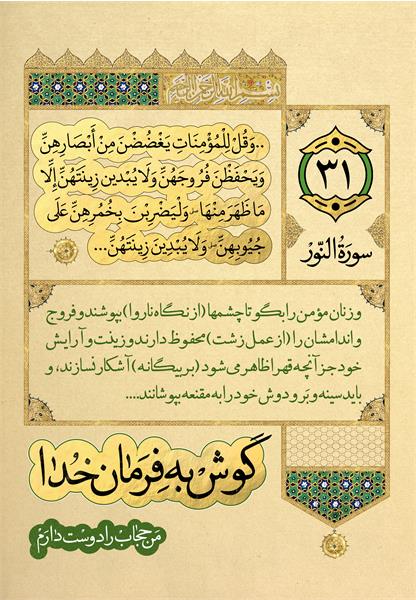 بسم الله الرحمن الرحیم
..وَقُل لِلْمُؤْمِنَاتِ يَغْضُضْنَ مِنْ أَبْصَارِهِنَّ
وَيَحْفَظْنَ فُرُوجَهُنَّ وَلَا يُبْدِينَ زِينَتَهُنَّ إِلَّا
مَا ظَهَرَ مِنْهَا ۖ وَلْيَضْرِبْنَ بِخُمُرِهِنَّ عَلَىٰ
جُيُوبِهِنَّ ۖ وَلَا يُبْدِينَ زِينَتَهُنَّ...
۳۱
سورَةُ النّور
و زنان مؤمن را بگو تا چشمها (از نگاه ناروا) بپوشند و فروج
و اندامشان را (از عمل زشت) محفوظ دارند و زینت و آرایش
خود جز آنچه قهرا ظاهر می شود (بر بیگانه) آشکار نسازند، و
باید سینه و بر و دوش خود را به مقنعه بپوشانند....
گوش به فِرمان خُدا
من حجاب را دوست دارم